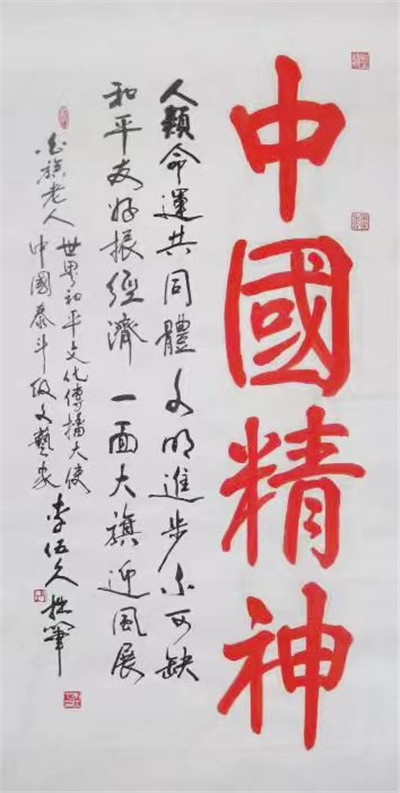 中國精神
人類命運共同體文明進步不可缺
和平友好振經濟一面大旗迎風展
世界和平文化傳播大使
老人中國泰斗级文藝家
李伍久拙筆